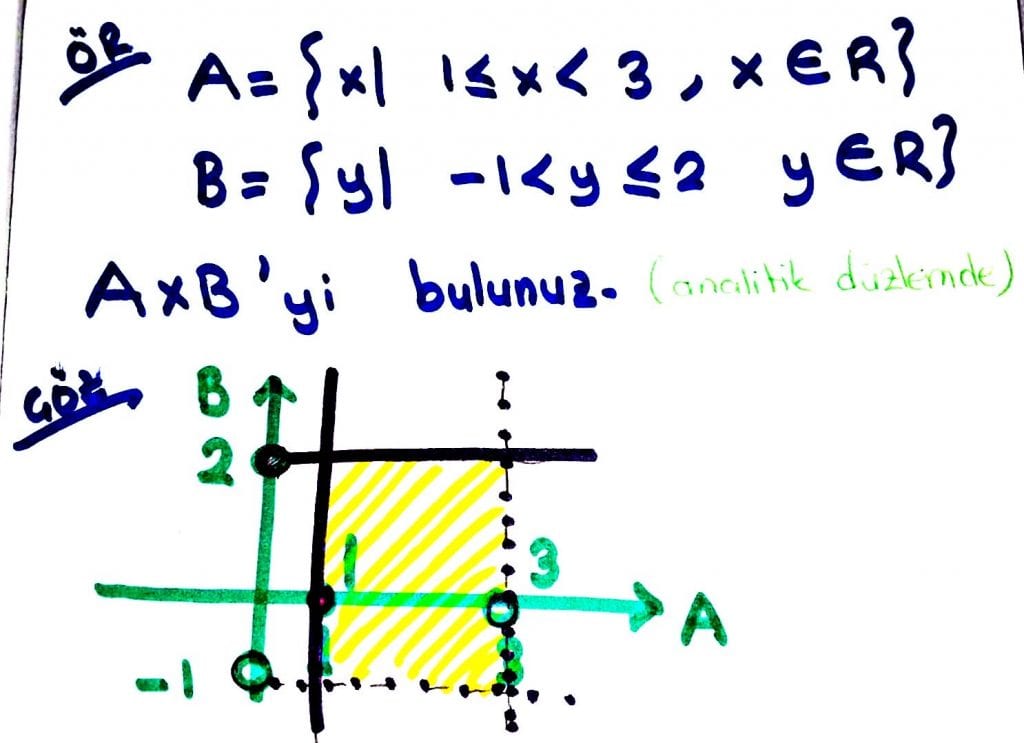 ÖR A = {x| 1 ≤ x < 3 , x ∈ R}
B = {y| -1 < y ≤ 2 y ∈ R}
A x B 'yi bulunuz. (analitik düzlemde)
ÇÖZ
B
2
1
3
A
-1